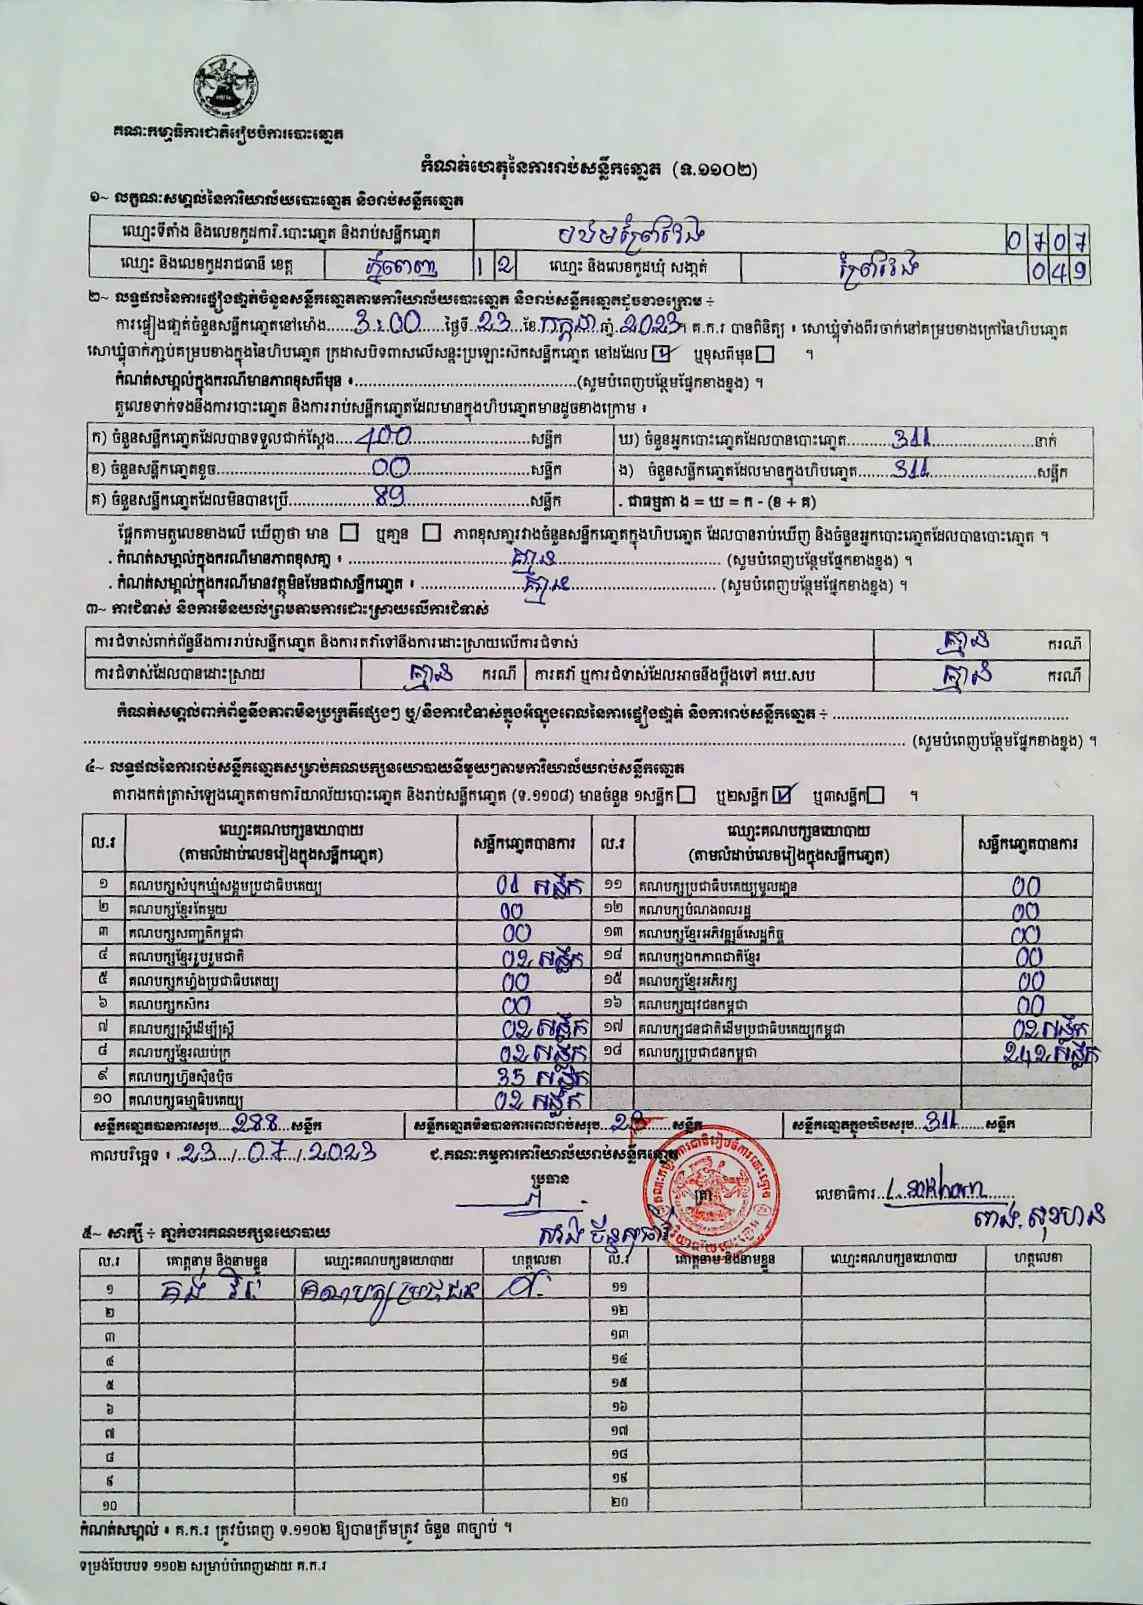 គណៈកម្មាធិការជាតិរៀបចំការបោះឆ្នោត
កំណត់ហេតុនៃការរាប់សន្លឹកឆ្នោត (ទ.១១០២)
១~ លក្ខណៈសម្គាល់នៃការិយាល័យបោះឆ្នោត និងរាប់សន្លឹកឆ្នោត
ឈ្មោះទីតាំង និងលេខកូដការិ.បោះឆ្នោត និងរាប់សន្លឹកឆ្នោត 0707
ឈ្មោះ និងលេខកូដរាជធានី ខេត្ត ភ្នំពេញ 12 ឈ្មោះ និងលេខកូដឃុំ សង្កាត់ ព្រៃវែង 049
២~ លទ្ធផលនៃការផ្ទៀងផ្ទាត់ចំនួនសន្លឹកឆ្នោតតាមការិយាល័យបោះឆ្នោត និងរាប់សន្លឹកឆ្នោតដូចខាងក្រោម ÷
ការផ្ទៀងផ្ទាត់ចំនួនសន្លឹកឆ្នោតនៅម៉ោង...3:00...ថ្ងៃទី.23.ខែ.កក្កដា.ឆ្នាំ.2023។ គ.ក.រ បានពិនិត្យ ៖ សោឃ្លុំទាំងពីរចាក់នៅគម្របខាងក្រៅនៃហិបឆ្នោត
សោឃ្លុំចាក់ភ្ជាប់គម្របខាងក្នុងនៃហិបឆ្នោត ក្រដាសបិទពាសលើសន្ទះប្រឡោះស៊កសន្លឹកឆ្នោត នៅដដែល ☑ ឬខុសពីមុន ☐ ។
កំណត់សម្គាល់ក្នុងករណីមានភាពខុសពីមុន ៖..........(សូមបំពេញបន្ថែមផ្នែកខាងខ្នង) ។
តួលេខទាក់ទងនឹងការបោះឆ្នោត និងការរាប់សន្លឹកឆ្នោតដែលមានក្នុងហិបឆ្នោតមានដូចខាងក្រោម ៖
ក) ចំនួនសន្លឹកឆ្នោតដែលបានទទួលជាក់ស្តែង....400....សន្លឹក ឃ) ចំនួនអ្នកបោះឆ្នោតដែលបានបោះឆ្នោត....311....នាក់
ខ) ចំនួនសន្លឹកឆ្នោតខូច....00....សន្លឹក ង) ចំនួនសន្លឹកឆ្នោតដែលមានក្នុងហិបឆ្នោត....311....សន្លឹក
គ) ចំនួនសន្លឹកឆ្នោតដែលមិនបានប្រើ....89....សន្លឹក . ជាធម្មតា ង = ឃ = ក - (ខ + គ)
ផ្អែកតាមតួលេខខាងលើ ឃើញថា មាន ☐ ឬគ្មាន ☐ ភាពខុសគ្នារវាងចំនួនសន្លឹកឆ្នោតក្នុងហិបឆ្នោត ដែលបានរាប់ឃើញ និងចំនួនអ្នកបោះឆ្នោតដែលបានបោះឆ្នោត ។
. កំណត់សម្គាល់ក្នុងករណីមានភាពខុសគ្នា ៖ ....គ្មាន.... (សូមបំពេញបន្ថែមផ្នែកខាងខ្នង) ។
. កំណត់សម្គាល់ក្នុងករណីមានវត្ថុមិនមែនជាសន្លឹកឆ្នោត ៖ ....គ្មាន.... (សូមបំពេញបន្ថែមផ្នែកខាងខ្នង) ។
៣~ ការជំទាស់ និងការមិនយល់ព្រមតាមការដោះស្រាយលើការជំទាស់
ការជំទាស់ពាក់ព័ន្ធនឹងការរាប់សន្លឹកឆ្នោត និងការតវ៉ាទៅនឹងការដោះស្រាយលើការជំទាស់ គ្មាន ករណី
ការជំទាស់ដែលបានដោះស្រាយ គ្មាន ករណី ការតវ៉ា ឬការជំទាស់ដែលអាចនឹងប្តឹងទៅ គឃ.សប គ្មាន ករណី
កំណត់សម្គាល់ពាក់ព័ន្ធនឹងភាពមិនប្រក្រតីផ្សេងៗ ឬ/និងការជំទាស់ក្នុងអំឡុងពេលនៃការផ្ទៀងផ្ទាត់ និងការរាប់សន្លឹកឆ្នោត ÷ ..........
.......... (សូមបំពេញបន្ថែមផ្នែកខាងខ្នង) ។
៤~ លទ្ធផលនៃការរាប់សន្លឹកឆ្នោតសម្រាប់គណបក្សនយោបាយនីមួយៗតាមការិយាល័យរាប់សន្លឹកឆ្នោត
តារាងកត់ត្រាសំឡេងឆ្នោតតាមការិយាល័យបោះឆ្នោត និងរាប់សន្លឹកឆ្នោត (ទ.១១០៨) មានចំនួន ១សន្លឹក ☐ ឬ២សន្លឹក ☑ ឬ៣សន្លឹក ☐ ។
ល.រ ឈ្មោះគណបក្សនយោបាយ (តាមលំដាប់លេខរៀងក្នុងសន្លឹកឆ្នោត) សន្លឹកឆ្នោតបានការ ល.រ ឈ្មោះគណបក្សនយោបាយ (តាមលំដាប់លេខរៀងក្នុងសន្លឹកឆ្នោត) សន្លឹកឆ្នោតបានការ
១ គណបក្សសំបុកឃ្មុំសង្គមប្រជាធិបតេយ្យ 01 សន្លឹក ១១ គណបក្សប្រជាធិបតេយ្យមូលដ្ឋាន 00
២ គណបក្សខ្មែរតែមួយ 00 ១២ គណបក្សបំណងពលរដ្ឋ 00
៣ គណបក្សសញ្ជាតិកម្ពុជា 00 ១៣ គណបក្សខ្មែរអភិវឌ្ឍន៍សេដ្ឋកិច្ច 00
៤ គណបក្សខ្មែររួបរួមជាតិ 02 សន្លឹក ១៤ គណបក្សឯកភាពជាតិខ្មែរ 00
៥ គណបក្សកម្លាំងប្រជាធិបតេយ្យ 00 ១៥ គណបក្សខ្មែរអភិរក្ស 00
៦ គណបក្សកសិករ 00 ១៦ គណបក្សយុវជនកម្ពុជា 00
៧ គណបក្សស្ត្រីដើម្បីស្ត្រី 02 សន្លឹក ១៧ គណបក្សជនជាតិដើមប្រជាធិបតេយ្យកម្ពុជា 02 សន្លឹក
៨ គណបក្សខ្មែរឈប់ក្រ 02 សន្លឹក ១៨ គណបក្សប្រជាជនកម្ពុជា 242 សន្លឹក
៩ គណបក្សហ៊្វុនស៊ិនប៉ិច 35 សន្លឹក
១០ គណបក្សធម្មាធិបតេយ្យ 02 សន្លឹក
សន្លឹកឆ្នោតបានការសរុប...288...សន្លឹក សន្លឹកឆ្នោតមិនបានការពេលរាប់សរុប...23...សន្លឹក សន្លឹកឆ្នោតក្នុងហិបសរុប...311...សន្លឹក
កាលបរិច្ឆេទ ៖ .23./.07./.2023 ជ.គណៈកម្មការការិយាល័យរាប់សន្លឹកឆ្នោត
ប្រធាន ត្រា លេខាធិការ
៥~ សាក្សី ÷ ភ្នាក់ងារគណបក្សនយោបាយ
ល.រ គោត្តនាម និងនាមខ្លួន ឈ្មោះគណបក្សនយោបាយ ហត្ថលេខា ល.រ គោត្តនាម និងនាមខ្លួន ឈ្មោះគណបក្សនយោបាយ ហត្ថលេខា
១ គណបក្សប្រជាជន ១១
២ ១២
៣ ១៣
៤ ១៤
៥ ១៥
៦ ១៦
៧ ១៧
៨ ១៨
៩ ១៩
១០ ២០
កំណត់សម្គាល់ ៖ គ.ក.រ ត្រូវបំពេញ ទ.១១០២ ឱ្យបានត្រឹមត្រូវ ចំនួន ៣ច្បាប់ ។
ទម្រង់បែបបទ ១១០២ សម្រាប់បំពេញដោយ គ.ក.រ